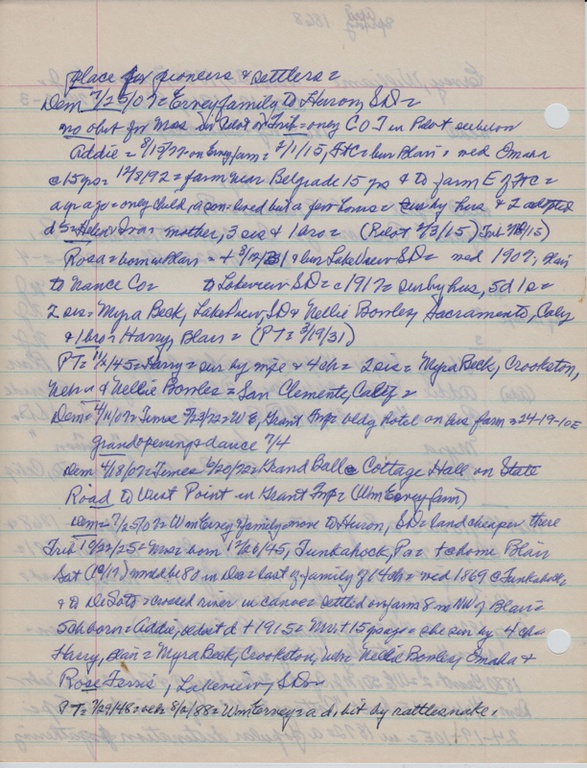 place for pioneers & settlers =
Dem 7/25/07 = Erney family to Huron, S.D. =
no obit for Mrs in Pilot or Trib = only C of T in Pilot
Addie = 8/15/72 on Erney farm = 2/1/15, = bur Blair = med Omaha
c 15 yrs = 12/8/92 = farm near Belgrade 15 yrs & to farm E of =
a yr ago = only child, a son = lived but a few hours = sur by hus & 2 adopted
ds = Helen & Iva = mother, 3 sis & 1 bro = (Pilot 2/3/15) Trib
Rosa = born Blair = + 3/12/31 & bur Lakeview S.D. = med 1907, Blair
to Nance Co = to Lakeview S.D. = c 1917 = sur by hus, 5 d 1 s =
2 sis = Myra Beck, Lakeview, S.D. & Nellie Bowles, Sacramento, Calif
& 1 bro = Harry, Blair = (PT = 3/19/31)
PT = 11/2/45 = Harry = sur by wife & 4 ch = 2 sis = Myra Beck, Crookston,
Nebr & Nellie Bowles = San Clemente, Calif =
Dem = 4/11/07 = Times 5/23/72 = W E, Grant Twp = bldg hotel on his farm = 24-19-10E
grand opening & dance 7/4
Dem 4/18/07 = Times 6/20/72 = Grand Ball @ Cottage Hall on State
Road to West Point in Grant Twp = (Wm Erney farm)
Dem = 7/25/07 = Wm Erney & family move to Huron, S.D. = land cheaper there
Trib 10/22/25 = Mrs = born 12/26/45, Tunkahock, Pa = + c home Blair
Sat (10/17) would be 80 in Dec = last of family of 14 ch = med 1869 c Tunkahock
& to DeSoto = crossed river in canoe = settled on farm 8 mi NW of Blair =
5 ch born = Addie, d + 1915 = Mr + 15 yrs ago = she sur by 4 ch =
Harry, Blair = Myra Beck, Crookston, Nebr = Nellie Bowles, Omaha &
Rose Ferris, Lakeview, S.D. =
PT = 7/29/48 = 8/2/88 = Wm Erney = a d, bit by rattlesnake.